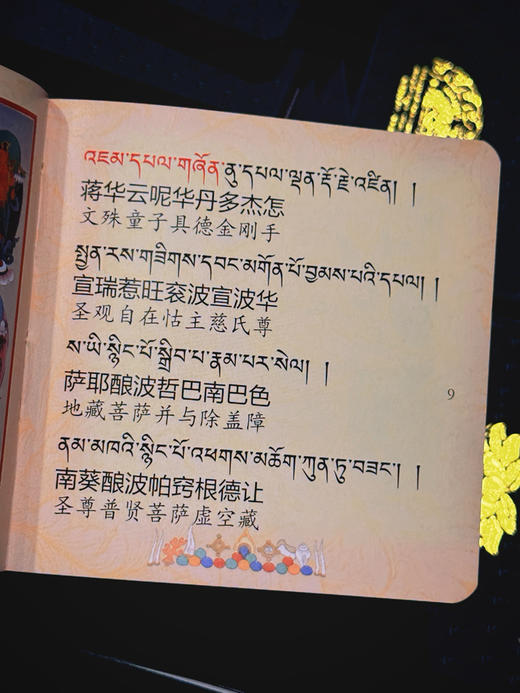 འཇམ་དཔལ་གཞོན་ནུ་དཔལ་ལྡན་རྡོ་རྗེ་འཛིན། །
蒋华云呢华丹多杰怎
文殊童子具德金刚手
སྤྱན་རས་གཟིགས་དབང་མགོན་པོ་བྱམས་པའི་དཔལ། །
宣瑞惹旺衮波宣波华
圣观自在怙主慈氏尊
ས་ཡི་སྙིང་པོ་སྒྲིབ་པ་རྣམ་པར་སེལ། །
萨耶酿波哲巴南巴色
地藏菩萨并与除盖障
ནམ་མཁའི་སྙིང་པོ་འཕགས་མཆོག་ཀུན་ཏུ་བཟང་། །
南葵酿波帕窍根德让
圣尊普贤菩萨虚空藏
9